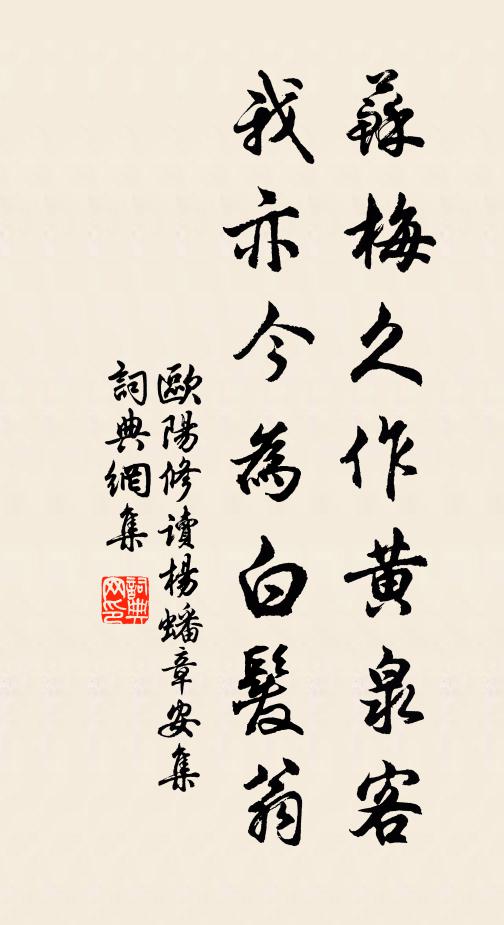 蘇梅久作黄泉客
我亦今為白髮翁
歐陽修讀楊蟠章安集
詞典網集
詞典網印